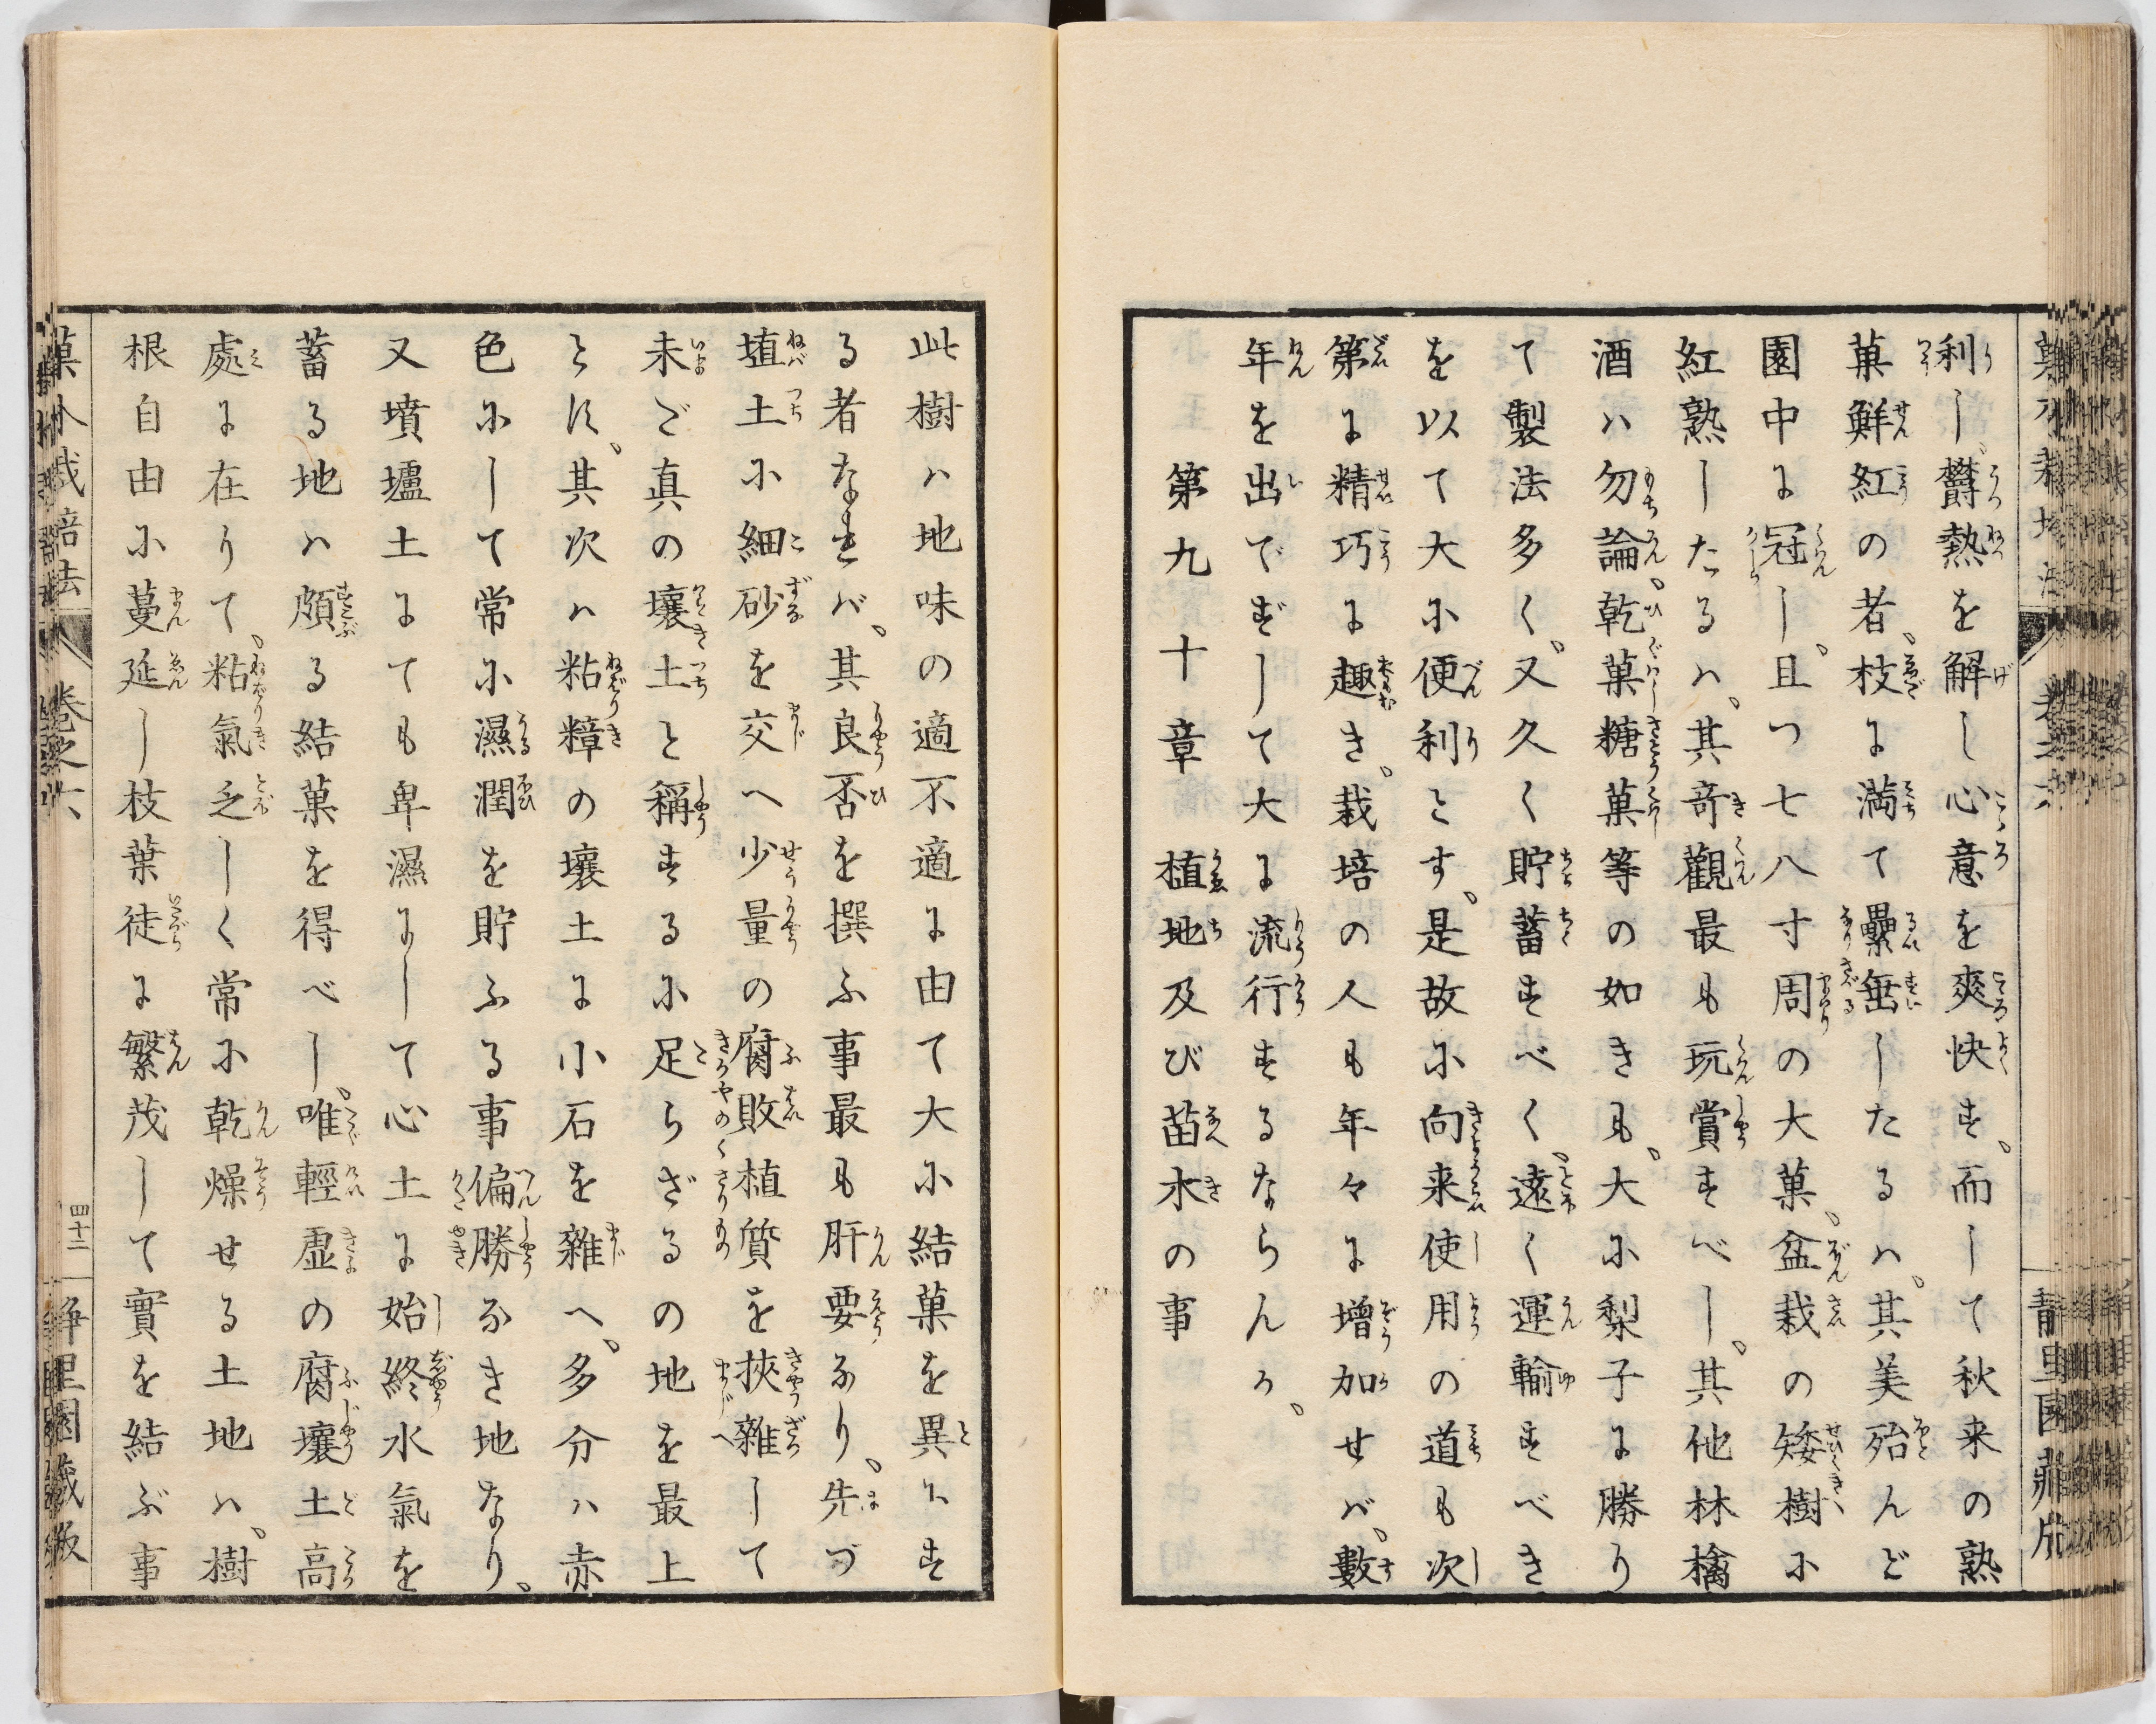 利し、欝熱を解し心意を爽快す、而して秋来の熟
菓鮮紅の者、枝に満て纍垂したるハ、其美殆んど
園中に冠し、且つ七八寸周の大菓、盆栽の矮樹に
紅熟したるハ、其竒觀最も玩賞すべし、其他林檎
酒ハ勿論、乾菓糖菓等の如きも、大に梨子に勝り
て製法多く、又久く貯蓄すべく、遠く運輸すべき
を以て大に便利とす、是故に向来使用の道も次
第に精巧に趣き、栽培の人も年々に増加せバ、數
年を出でずして大に流行するならんか、
第九十章　植地及び苗木の事
此樹ハ地味の適不適に由て大に結菓を異にす
る者なれバ、其良否を撰ふ事最も肝要なり、先づ
埴土に細砂を交へ少量の腐敗植質を挾雜して
未だ真の壤土と稱するに足らざるの地を最上
とす、其次ハ粘𥽜の壤土に小石を雜へ、多分ハ赤
色にして常に濕潤を貯ふる事偏勝なき地なり、
又墳壚土にても卑濕にして心土に始終水氣を
蓄る地ハ頗る結菓を得べし、唯輕虚の腐壤土高
處に在りて、粘氣乏しく常に乾燥せる土地ハ、樹
根自由に蔓延し枝葉徒に繁茂して實を結ぶ事
菓木栽培法
卷之六
四十二
静里園藏版